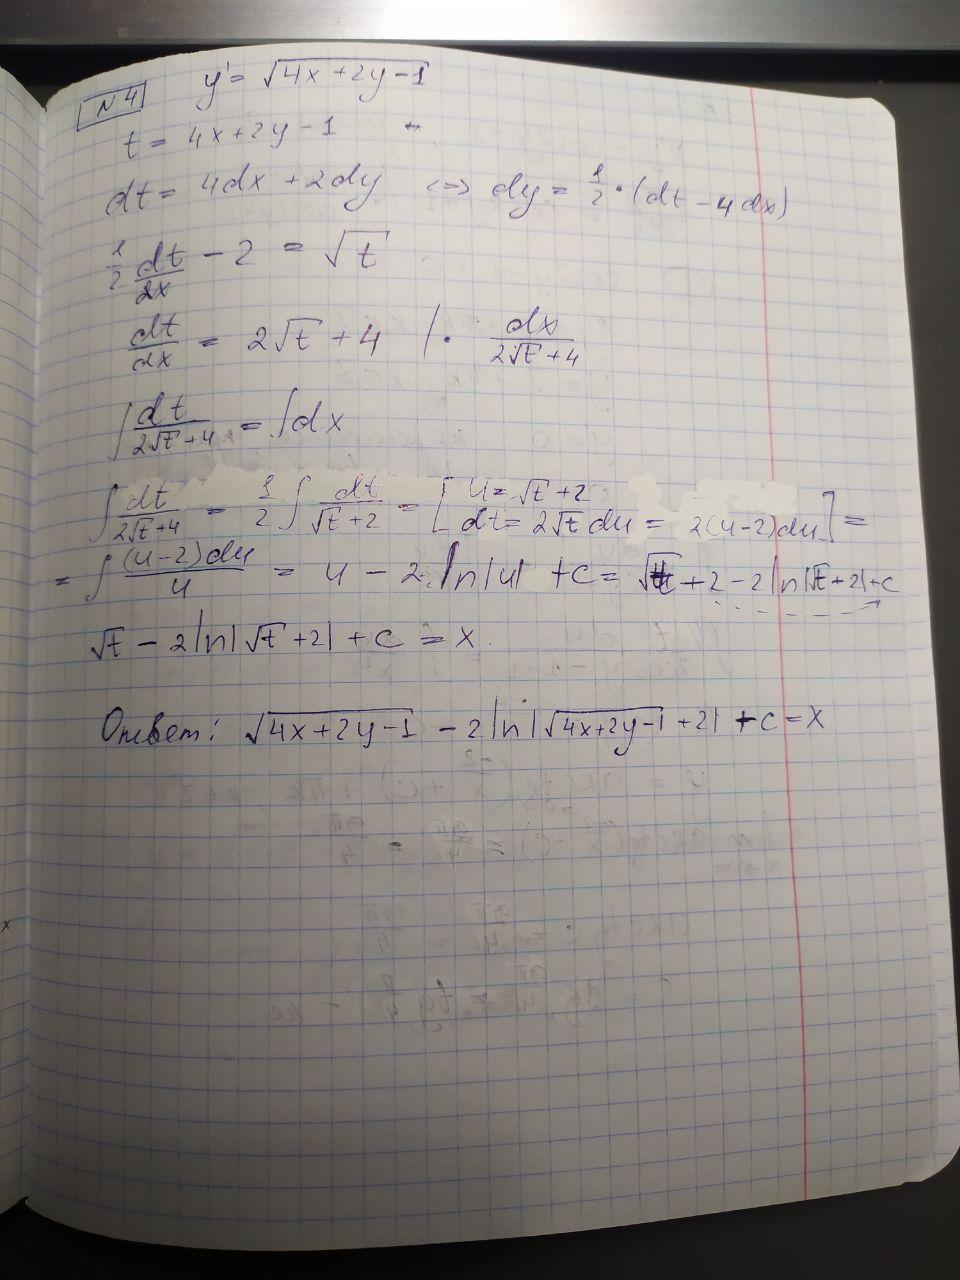 №4 y' = √(4x+2y−1)
t = 4x+2y−1
dt = 4dx + 2dy <=> dy = 1/2 · (dt − 4dx)
1/2 dt/dx − 2 = √t
dt/dx = 2√t + 4 | · dx/(2√t+4)
∫ dt/(2√t+4) = ∫dx
∫ dt/(2√t+4) = 1/2 ∫ dt/(√t+2) = [u = √t+2 dt = 2√t du = 2(u−2)du] =
= ∫ (u−2)du/u = u − 2·ln|u| + c = √t + 2 − 2ln|√t+2| + c
√t − 2ln|√t+2| + c = x.
Ответ: √(4x+2y−1) − 2ln|√(4x+2y−1) + 2| + c = x